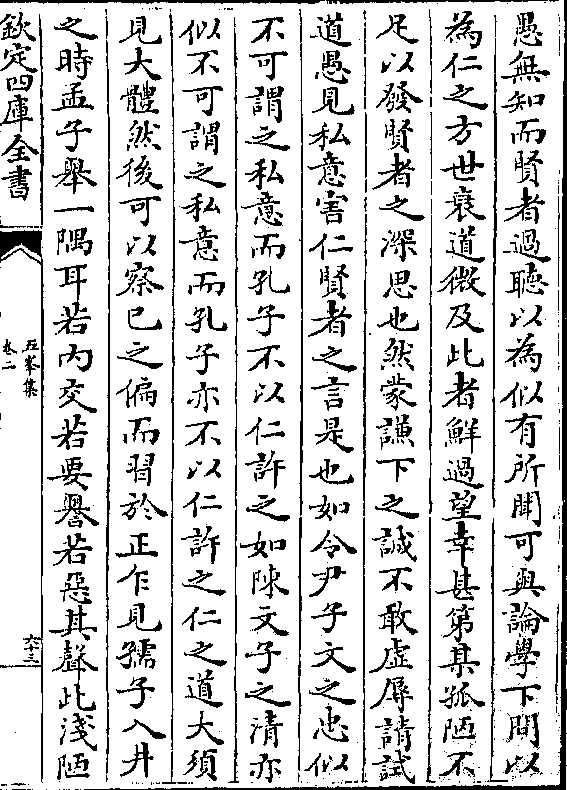 愚無知而賢者過聽以為似有所聞可與論學下問以
為仁之方世衰道微及此者鮮過望幸甚第某孤陋不
足以發賢者之深思也然蒙謙下之誠不敢虛辱請試
道愚見私意害仁賢者之言是也如令尹子文之忠似
不可謂之私意而孔子不以仁許之如陳文子之清亦
似不可謂之私意而孔子亦不以仁許之仁之道大須
見大體然後可以察已之偏而習於正乍見孺子入井
之時孟子舉一隅耳若内交若要譽若惡其聲此淺陋
欽定四庫全書
五峯集
卷二
六十三